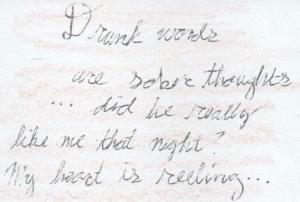 Drunk words
are sober thoughts
... did he really
like me that night?
My heart is reeling...